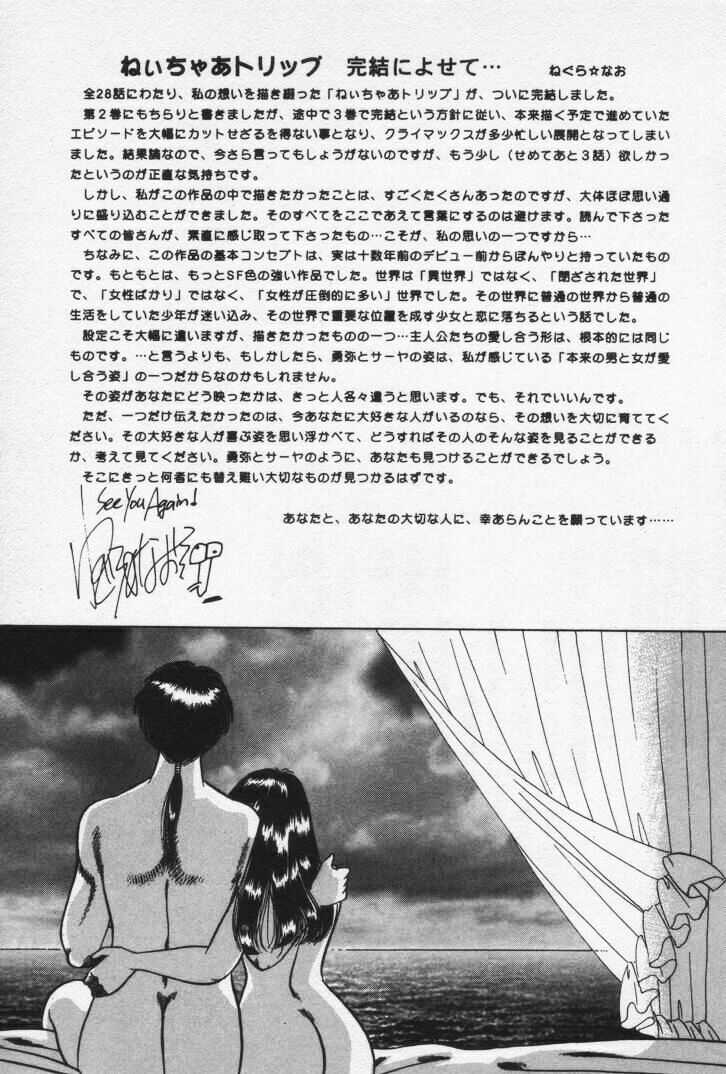 ねぃちゃあトリップ　完結によせて…　ねぐら☆なお
全28話にわたり、私の想いを描き綴った「ねぃちゃあトリップ」が、ついに完結しました。
第２巻にもちらりと書きましたが、途中で３巻で完結という方針に従い、本来描く予定で進めていた
エピソードを大幅にカットせざるを得ない事となり、クライマックスが多少忙しい展開となってしまい
ました。結果論なので、今さら言ってもしょうがないのですが、もう少し（せめてあと３話）欲しかっ
たというのが正直な気持ちです。
しかし、私がこの作品の中で描きたかったことは、すごくたくさんあったのですが、大体ほぼ思い通
りに盛り込むことができました。そのすべてをここであえて言葉にするのは避けます。読んで下さった
すべての皆さんが、素直に感じ取って下さったもの…こそが、私の思いの一つですから…
ちなみに、この作品の基本コンセプトは、実は十数年前のデビュー前からぼんやりと持っていたもの
です。もともとは、もっとSF色の強い作品でした。世界は「異世界」ではなく、「閉ざされた世界」
で、「女性ばかり」ではなく、「女性が圧倒的に多い」世界でした。その世界に普通の世界から普通の
生活をしていた少年が迷い込み、その世界で重要な位置を成す少女と恋に落ちるという話でした。
設定こそ大幅に違いますが、描きたかったものの一つ…主人公たちの愛し合う形は、根本的には同じ
ものです。…と言うよりも、もしかしたら、勇弥とサーヤの姿は、私が感じている「本来の男と女が愛
し合う姿」の一つだからなのかもしれません。
その姿があなたにどう映ったかは、きっと人各々違うと思います。でも、それでいいんです。
ただ、一つだけ伝えたかったのは、今あなたに大好きな人がいるのなら、その想いを大切に育ててく
ださい。その大好きな人が喜ぶ姿を思い浮かべて、どうすればその人のそんな姿を見ることができる
か、考えて見てください。勇弥とサーヤのように、あなたも見つけることができるでしょう。
そこにきっと何者にも替え難い大切なものが見つかるはずです。
I See You Again!
あなたと、あなたの大切な人に、幸あらんことを願っています……